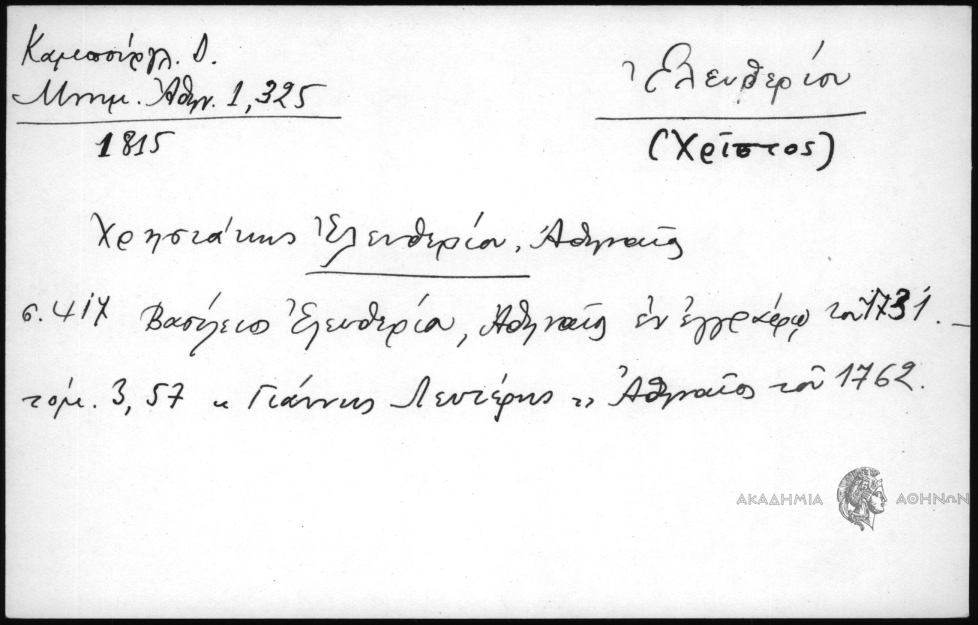 Καμπούρογλ. Δ.
Μνημ. Ἀθην. 1,325
1815
Ἐλευθερίου
(Χρῖστος)
Χρηστάκης Ἐλευθερίου, Ἀθηναῖος
σ. 417 Βασίλειος Ἐλευθερίου, Ἀθηναῖος ἐν ἐγγράφῳ τοῦ 1731. _
τόμ. 3, 57 " Γιάννης Λευτέρης " Ἀθηναῖος τοῦ 1762.
ΑΚΑΔΗΜΙΑ ΑΘΗΝΩΝ